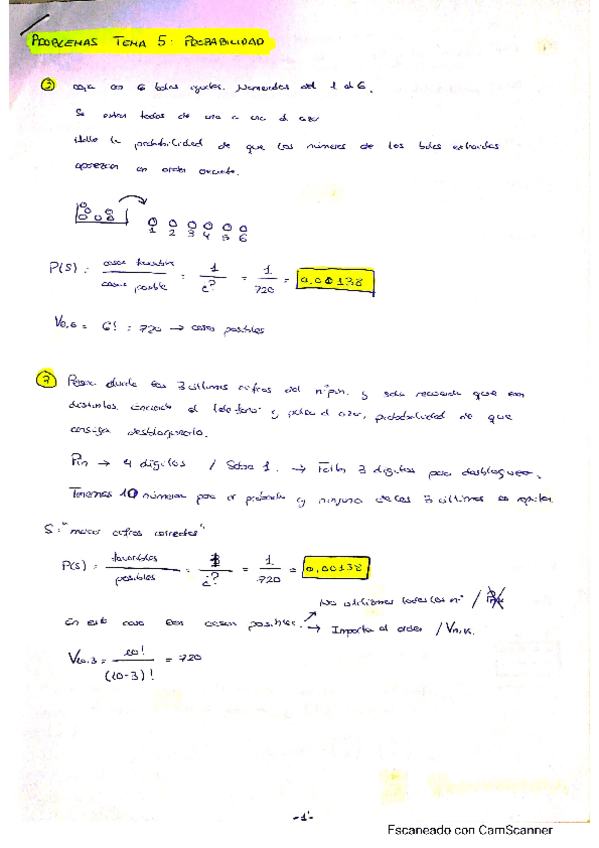 PROBLEMAS TEMA 5: PROBABILIDAD
caja con 6 bolas iguales. Numeradas del 1 al 6.
Se extraen todas de una a una al azar
Halle la probabilidad de que los números de las bolas extraidas
aparezcan en orden creciente.
1 2 3 4 5 6
P(S) = casos favorables / casos posibles = 1 / ¿? = 1 / 720 = 0,00138
V6,6 = 6! = 720 → casos posibles
7 olvida las 3 últimas cifras del nº pin y solo recuerda que son
distintas, enciende el teléfono y pulsa al azar, probabilidad de que
consiga desbloquearlo.
Pin → 4 dígitos / Sabe 1. → Faltan 3 dígitos para desbloquear.
Tenemos 10 números para ir probando y ninguno de los 3 últimos se repiten
S = "marcar cifras correctas"
P(S) = favorables / posibles = 1 / ¿? = 1 / 720 = 0,00138
No utilizamos todos los nº /
En este caso son casos posibles. → Importa el orden / Vn,k.
V10,3 = 10! / (10-3)! = 720
-1-
Escaneado con CamScanner